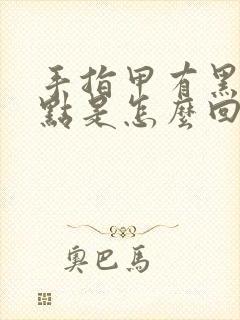 手指甲有黑
點是怎麼回
奧巴馬